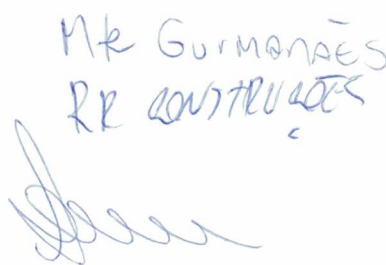 Mk Guimarães
RR CONSTRUÇÕES